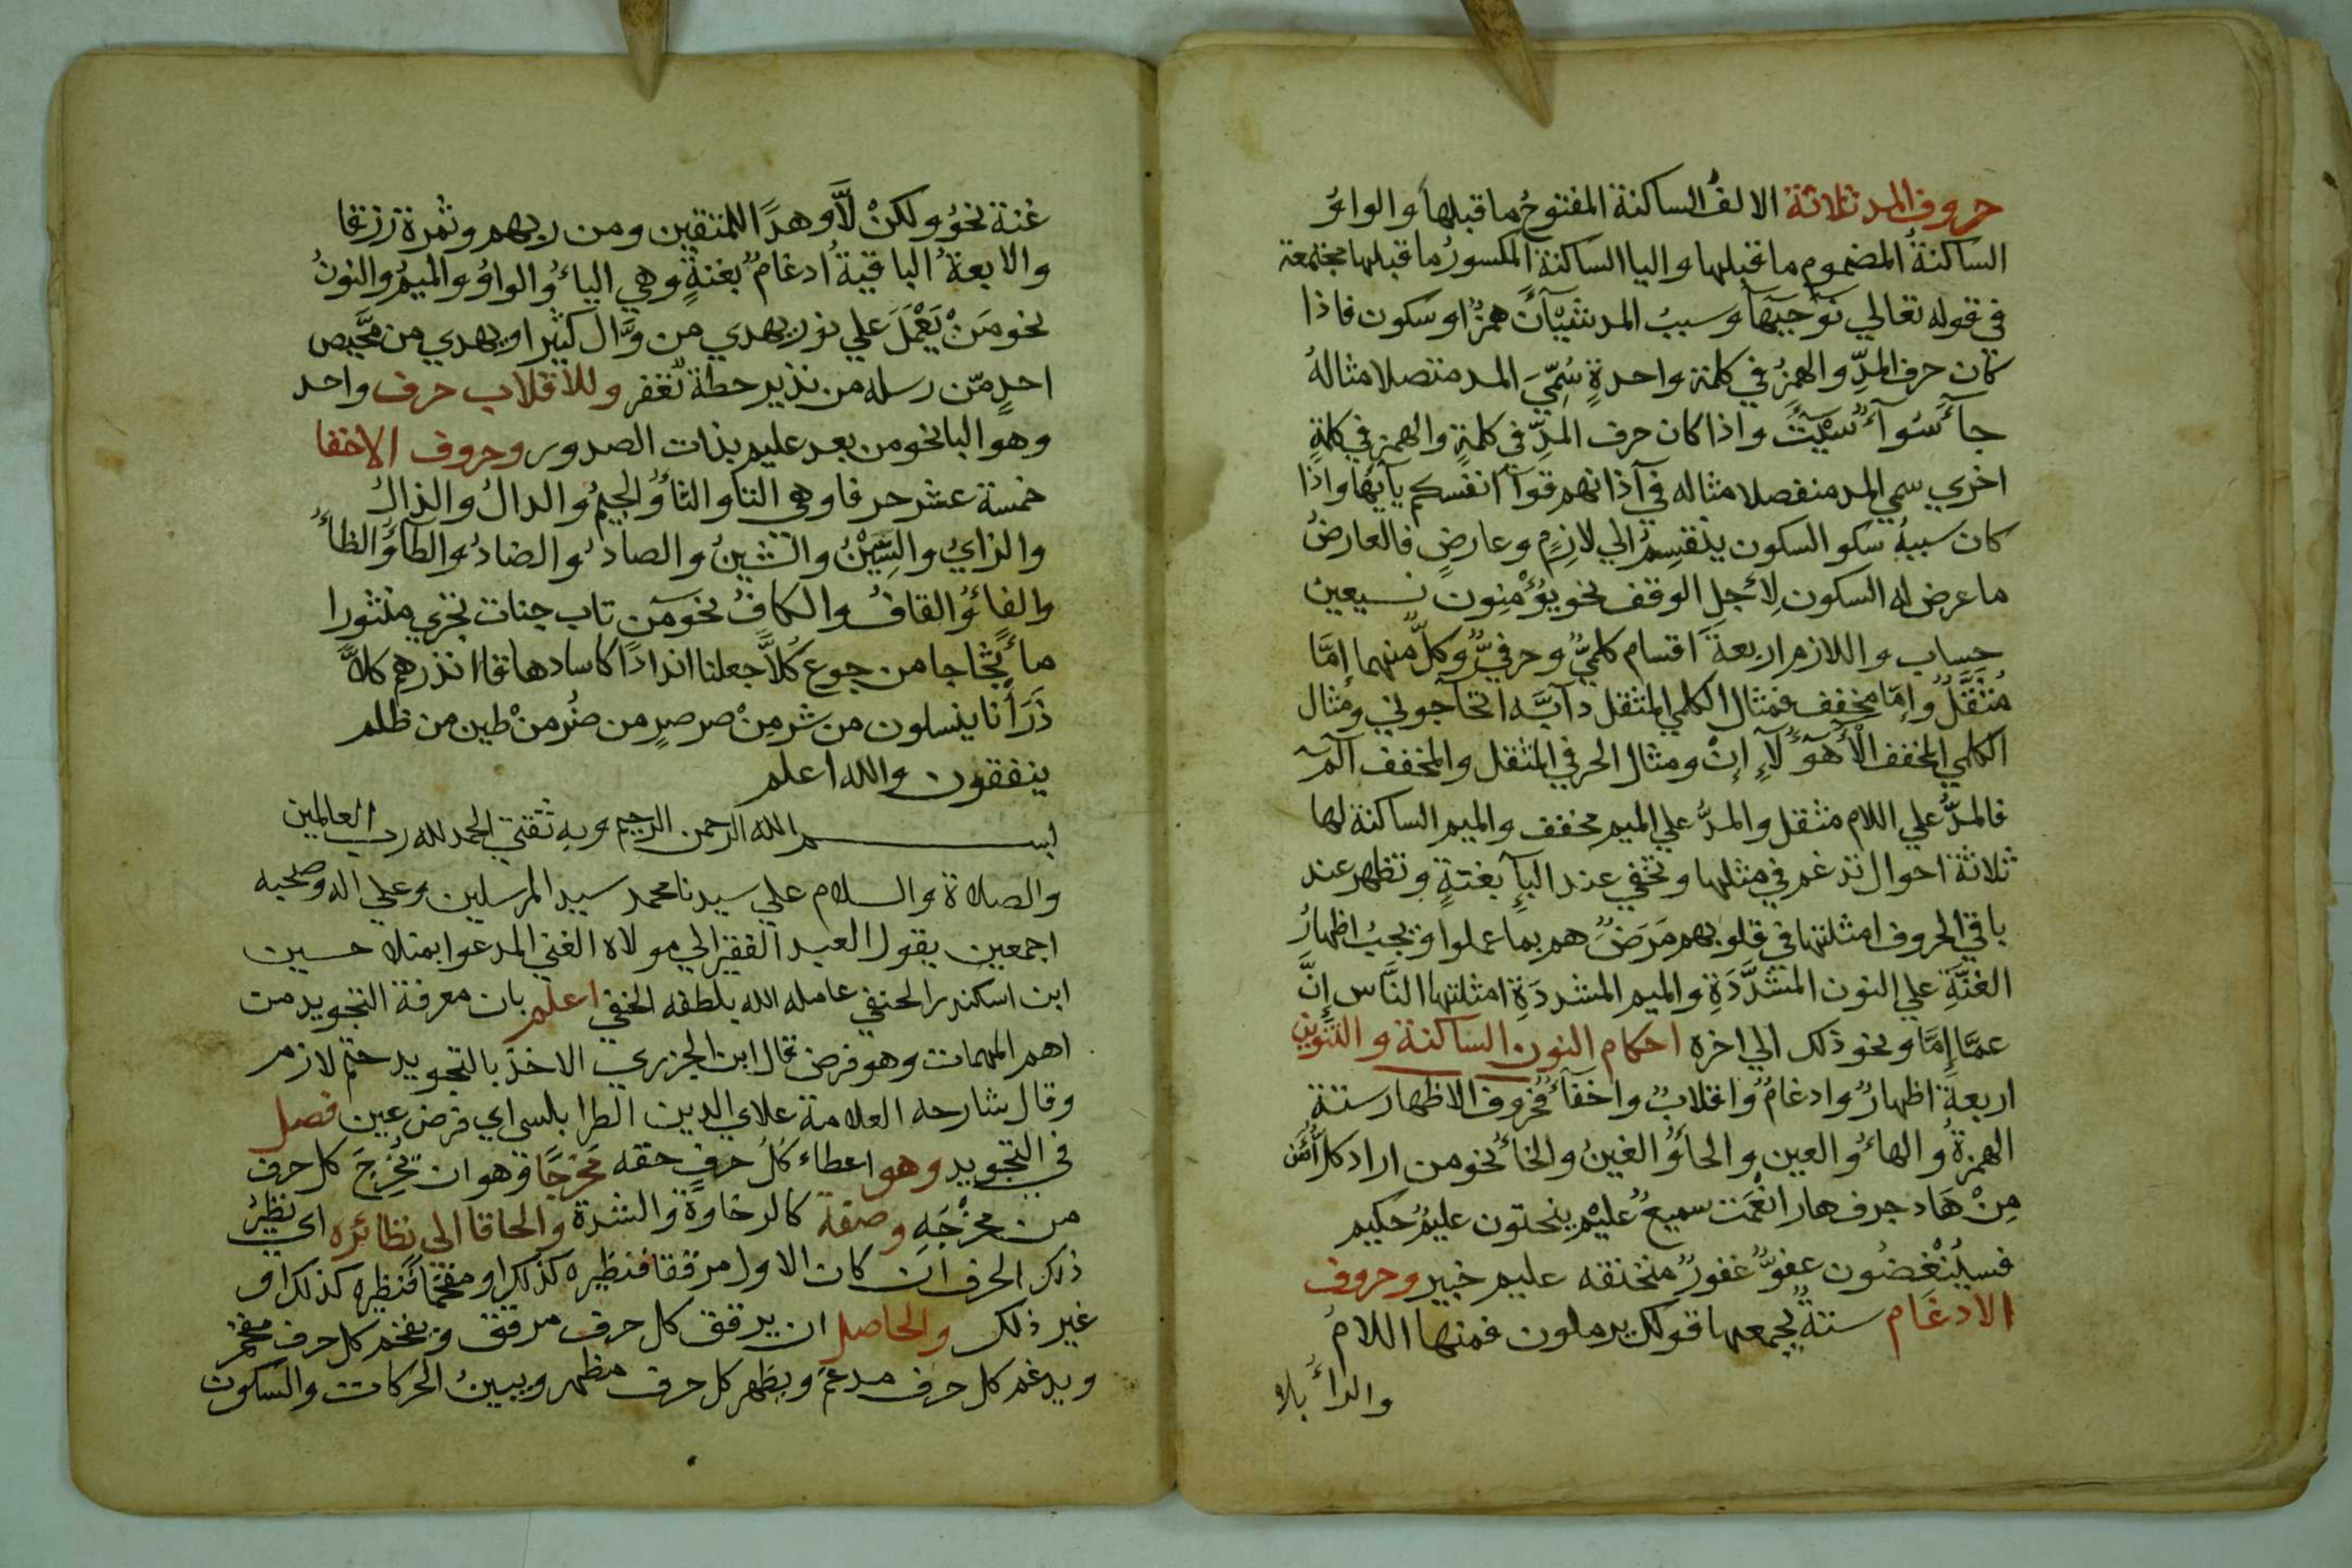 حروف المد ثلاثة الالف الساكنة المفتوح ما قبلها والواو
الساكنة المضموم ما قبلها واليا الساكنة المكسور ما قبلها مجتمعة
في قوله تعالي نوحيها وسبب المد شيئان همز او سكون فاذا
كان حرف المد والهمز في كلمة واحدة سُمّي المد متصلا مثاله
جآ سُوآ سيئت واذا كان حرف المدّ في كلمة والهمز في كلمة
اخري سمي المد منفصلا مثاله في آذانهم قوآ انفسكم يآيها واذا
كان سببه سكو السكون ينقسم الي لازم وعارض فالعارض
ما عرض له السكون لاجل الوقف نحو يؤمنون نستعين
حساب واللازم اربعة اقسام كلميّ وحرفيّ وكلّ منهما إمّا
مثقّل وإمّا مخفف فمثال الكلمي المثقل دآبّه اتحآجوني ومثال
الكلمي المخفف هؤلاءِ إن ومثال الحرفي المثقل والمخفف آلمّ
فالمدّ علي اللام مثقل والمدّ علي الميم مخفف والميم الساكنة لها
ثلاثة احوال تدغم في مثلها وتخفي عند البآء بغنةٍ وتظهر عند
باقي الحروف امثلتها في قلوبهم مرض هم بما عملوا ويجب اظهار
الغنّةِ علي النون المشدَّدَةِ والميم المشددَةِ امثلتها النَّاس إنَّ
عمَّا إمَّا ونحو ذلك الي اخره احكام النون الساكنة والتنوين
اربعة اظهار وادغام واقلاب واخفآ فحروف الاظهار ستة
الهمزة والهاء والعين والحاء والغين والخاء نحو من اراد كل أمن
مِنْ هَاد جرف هار انعمت سميع عليم ينحتون عليم حكيم
فسينغضون عفوّ غفور منخنقه عليم خبير وحروف
الادغام ستة يجمعها قولك يرملون فمنها اللام
والرا بلا
غنة نحو ولكنْ لَّا وهدًا للمتقين ومن ربهم وثمرة رزقا
والاربعة الباقية ادغام بغنةٍ وهي الياء والواو والميم والنون
نحو مَنْ يَعْمَلَ علي نور يهدي من وَّال كثيرا ويهدي من محيص
احدٍ مّن رسله من نذير حطة نغفر وللاقلاب حرف واحد
وهو البا نحو من بعد عليم بذات الصدور وحروف الاخفا
خمسة عشر حرفا وهي التا والثا والجيم والدال والذال
والزاي والسين والشين والصاد والضاد والطاء والظاء
والفاء والقاف والكاف نحو من تاب جنات تجري منثورا
ماءً ثجّاجا من جوع كُلاًّ جعلنا اندادًا كاسا دهاقا انذرهم كلاًّ
ذَرَأْنا ينسلون من شر مِنْ صرصرٍ من ضُر منْ طين من ظلم
ينفقون والله اعلم
بسم الله الرحمن الرحيم وبه ثقتي الحمد لله رب العالمين
والصلاة والسلام علي سيدنا محمد سيد المرسلين وعلي اله وصحبه
اجمعين يقول العبد الفقير الي مولاه الغني المدعوا بمنلا حسين
ابن اسكندر الحنفي عامله الله بلطفه الخفي اعلم بان معرفة التجويد من
اهم المهمات وهو فرض قال ابن الجزري الاخذ بالتجويد حتم لازم
وقال شارحه العلامة علاي الدين الطرابلسي اي فرض عين فصل
في التجويد وهو اعطاء كُلُ حرفٍ حقه مَخْرجًا وهو ان تُخْرِجَ كل حرف
من مخْرَجَهِ وصفة كالرخاوة والشدة والحاقا الي نظائره اي نظيرُ
ذلك الحرف ان كان الاول مرققا فنظيره كذلك او مفخما فنظيره كذلك او
غير ذلك والحاصل ان يرقق كل حرف مرقق ويفخم كل حرف مفخم
ويدغم كل حرف مدغم ويظهر كل حرف مظهر ويبين الحركات والسكون